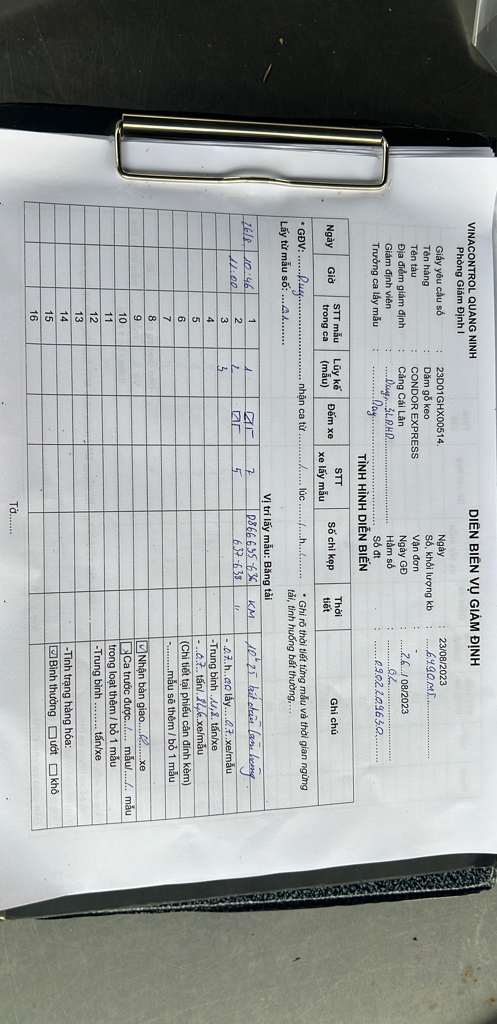 VINACONTROL QUANG NINH
Phòng Giám Định I
DIỄN BIẾN VỤ GIÁM ĐỊNH
Giấy yêu cầu số : 23D01GHX00514.
Ngày : 23/08/2023
Tên hàng : Dăm gỗ keo
Số, khối lượng kb : 6490MT
Tên tàu : CONDOR EXPRESS
Vận đơn :
Địa điểm giám định : Cảng Cái Lân
Ngày GĐ : 26/08/2023
Giám định viên : Duy
Hầm số : 02
Trưởng ca lấy mẫu : Duy
Số đt : 0902209630
TÌNH HÌNH DIỄN BIẾN
Ngày Giờ STT mẫu trong ca Lũy kế (mẫu) Đếm xe STT xe lấy mẫu Số chì kẹp Thời tiết Ghi chú
* GĐV: Duy nhận ca từ ...../..... lúc ...../.....h...../.....
Lấy từ mẫu số:
* Ghi rõ thời tiết từng mẫu và thời gian ngừng tải, tình huống bất thường....
Vị trí lấy mẫu: Băng tải
26/8 10:46 1 1 7 0866635-636 KM 10h25
11:00 2 2 5 637-638 "
3 3
-Trung bình tấn/xe
4
5
(Chi tiết tại phiếu cân đính kèm)
6
7
-.........mẫu sẽ thêm / bỏ 1 mẫu
8
Nhận bàn giao xe
9
Ca trước được mẫu/ mẫu
10
trong loạt thêm / bỏ 1 mẫu
11
-Trung bình ......... tấn/xe
12
13
-Tình trạng hàng hóa:
14
Bình thường ướt khô
15
16
Tờ......